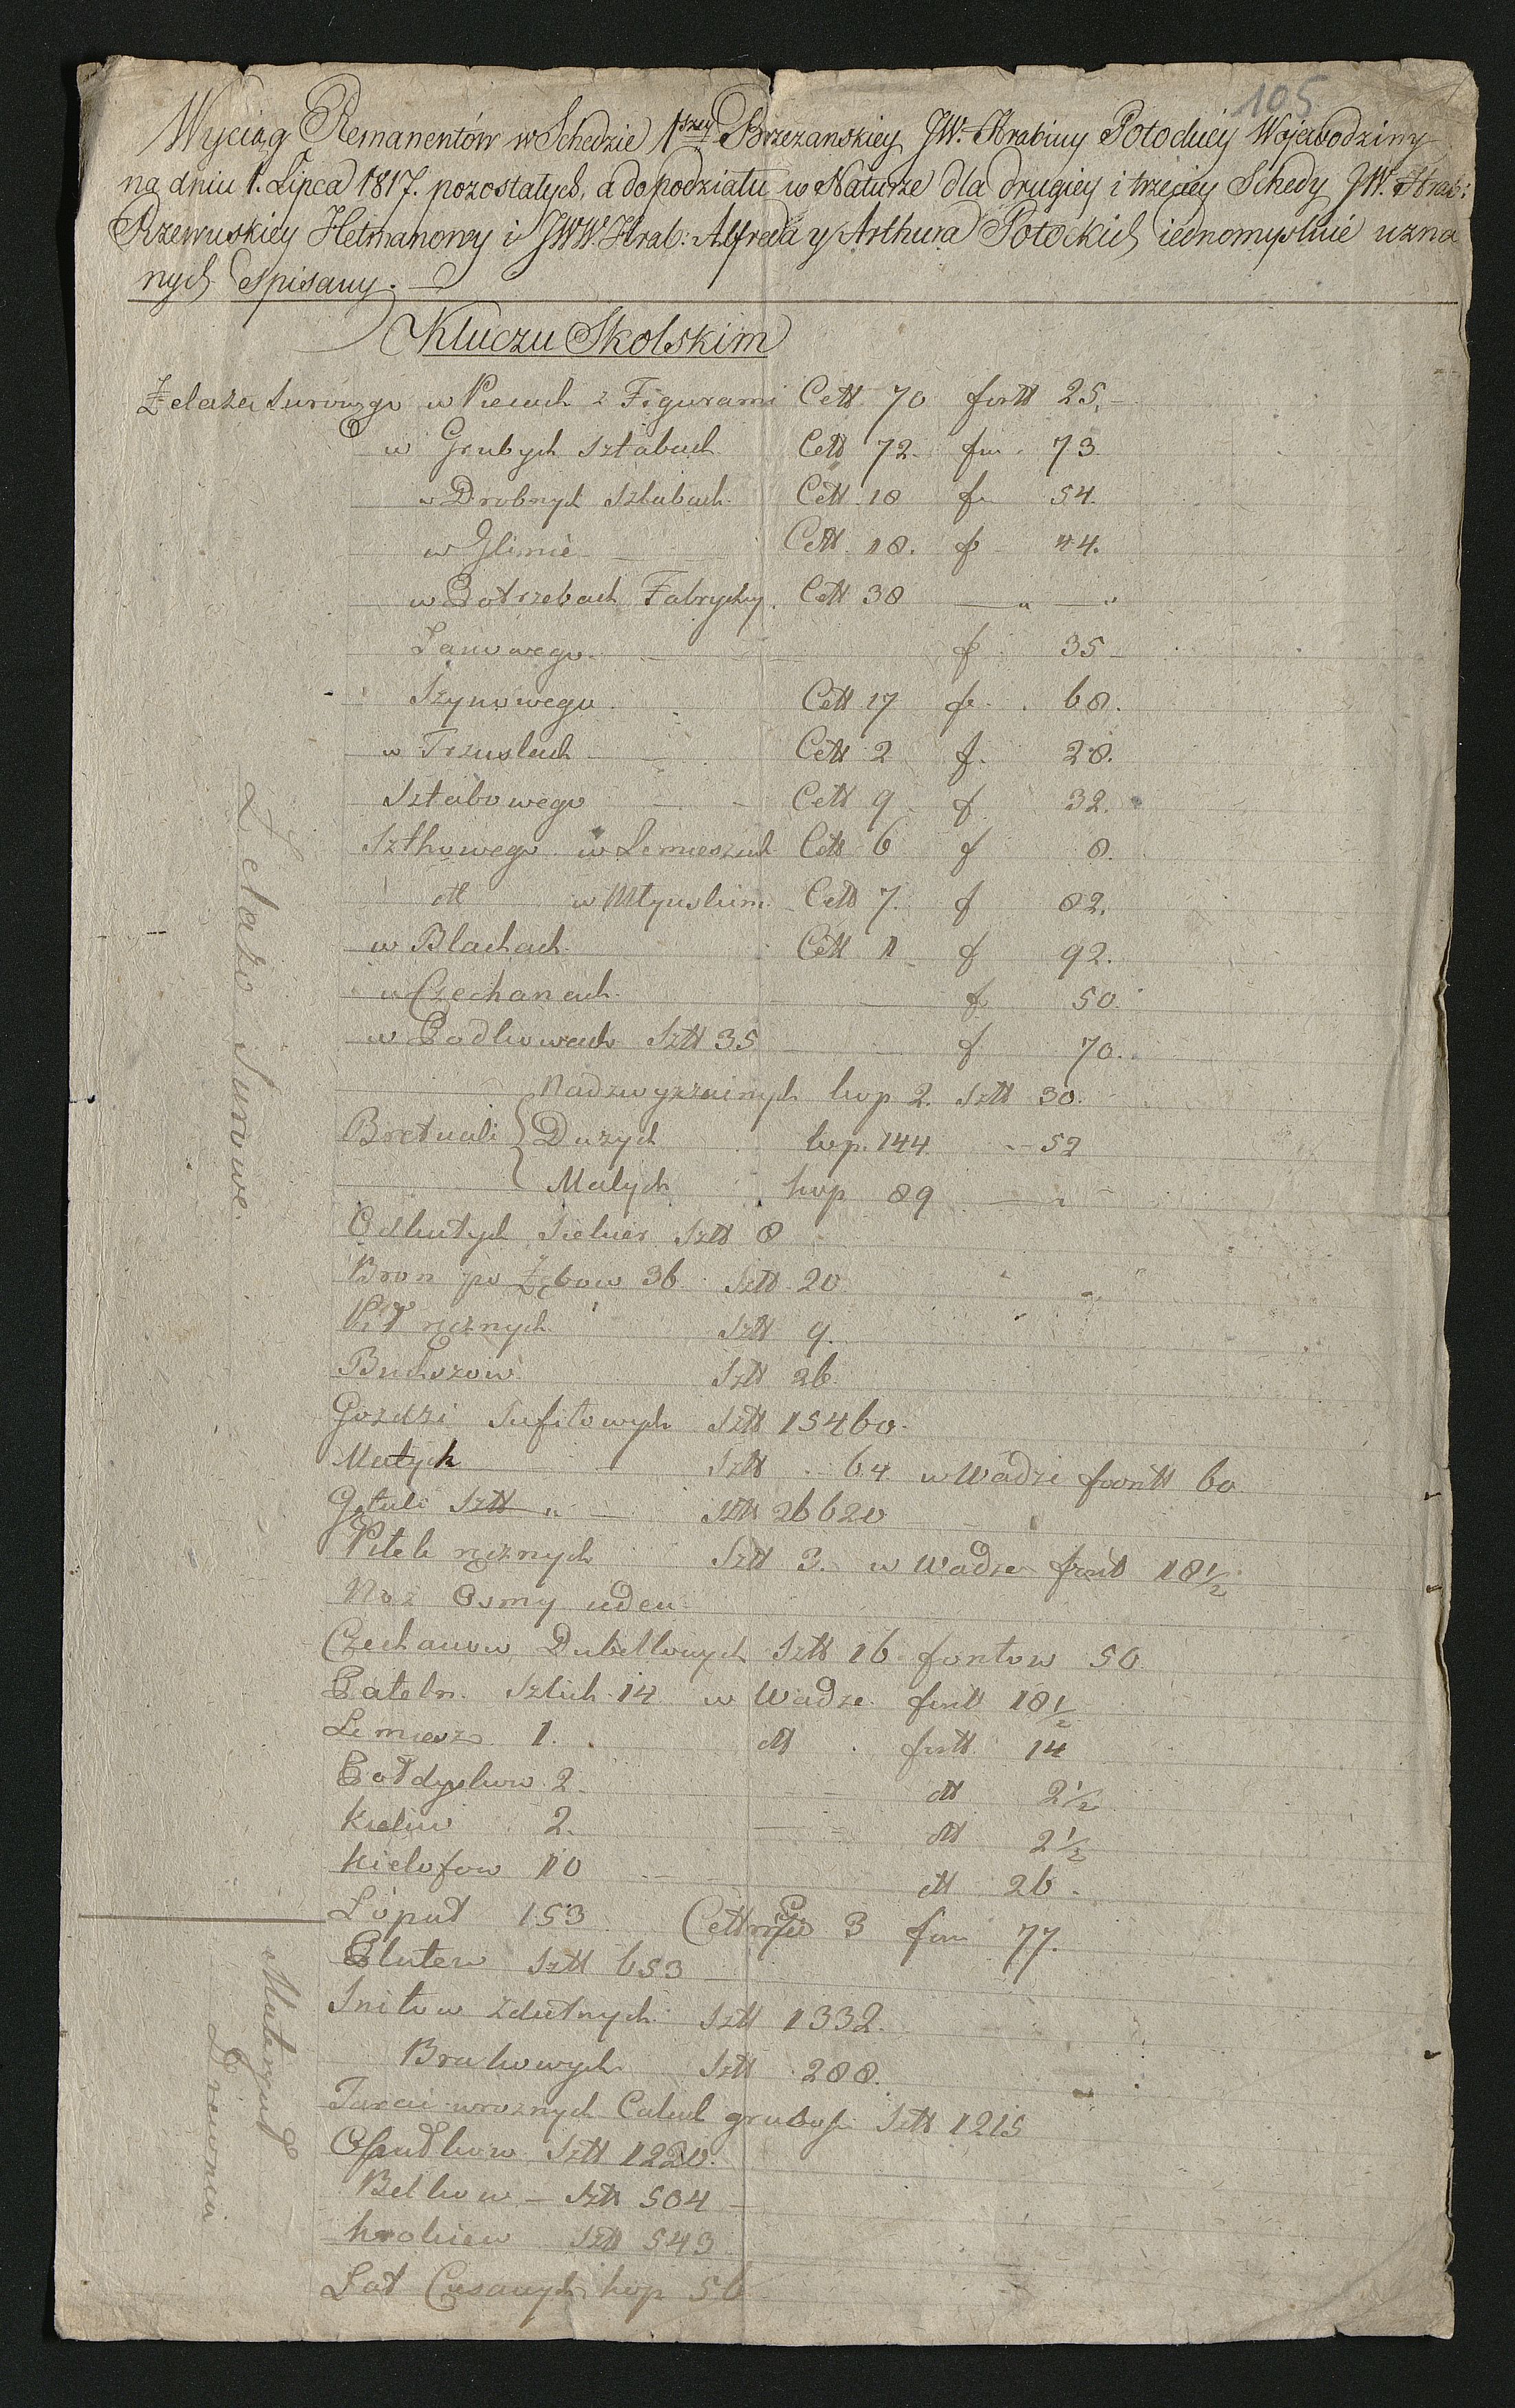 105
Wyciąg Remanentów w Schedzie 1szey Brzezanskiey JW. Hrabiny Potockiey Wojewodziny
na dniu 1. Lipca 1817. pozostałych, a do podziału w Naturze dla drugiey i trzeciey Schedy JW. Hrab:
Rzewuskiey Hetmanowy i JWW. Hrab: Alfreda y Arthura Potockich iednomyslnie uzna
nych Spisany. —
Kluczu Skolskim
Żelaza Surowego w Piecach z Figurami Cett 70 funtt 25.
w Grubych Sztabach Cett 72. fun. 73
w Drobnych Sztabach Cett 18 f. 54.
w Glinie Cett. 18. f 44.
w Potrzebach Fabryczny. Cett 38 — " — "
Lanowego. f 35
Szynowego. Cett 17 f. 68.
w Trzuslach Cett 2 f. 28.
Sztabowego Cett 9 f 32.
Sztkowego w Lemieszach Cett 6 f 8.
dtt w Młynskim Cett 7. f 82.
w Blachach Cett 11 f 92.
w Czechanach f 50.
w Podkowach Sztt 35 f 70.
Nadzwyczainych kop 2. Sztt 30.
Bretnali Duzych kop. 144 — 52
Małych kop 89 — "
Okutych Siekier Sztt 8
Bron po Zębow 36. Sztt 20
Pił ręcznych Sztt 9.
Buchszow Sztt 26.
Gozdzi Sufitowych Sztt 15460.
Małych Sztt 64 w Wadze funtt 60
Gątali Sztt " — Sztt 26620
Pitek ręcznych Sztt 3. w Wadze funtt 18 1/2
Noz Osmy ieden
Czechanow Dubeltowych Sztt 16 funtow 50
Pateln. Sztuk 14 w Wadze funtt 18 1/2
Lemiesz 1. dtt funtt 14
2. dtt 2 1/2
2. dtt 2 1/2
Kielofow 10 dtt 26.
Łopat 153 3 fun 77.
Platew Sztt 653
Snitow zdatnych Sztt 1332.
Brakowych Sztt 288.
Tarcic wroznych Calach grubosci Sztt 1215
Sztt 1220.
Belkow — Sztt 504 —
Krokiew Sztt 543
Łat Ciesanych kop 56
Żelazo Surowe.
Materyał
Drzewnia